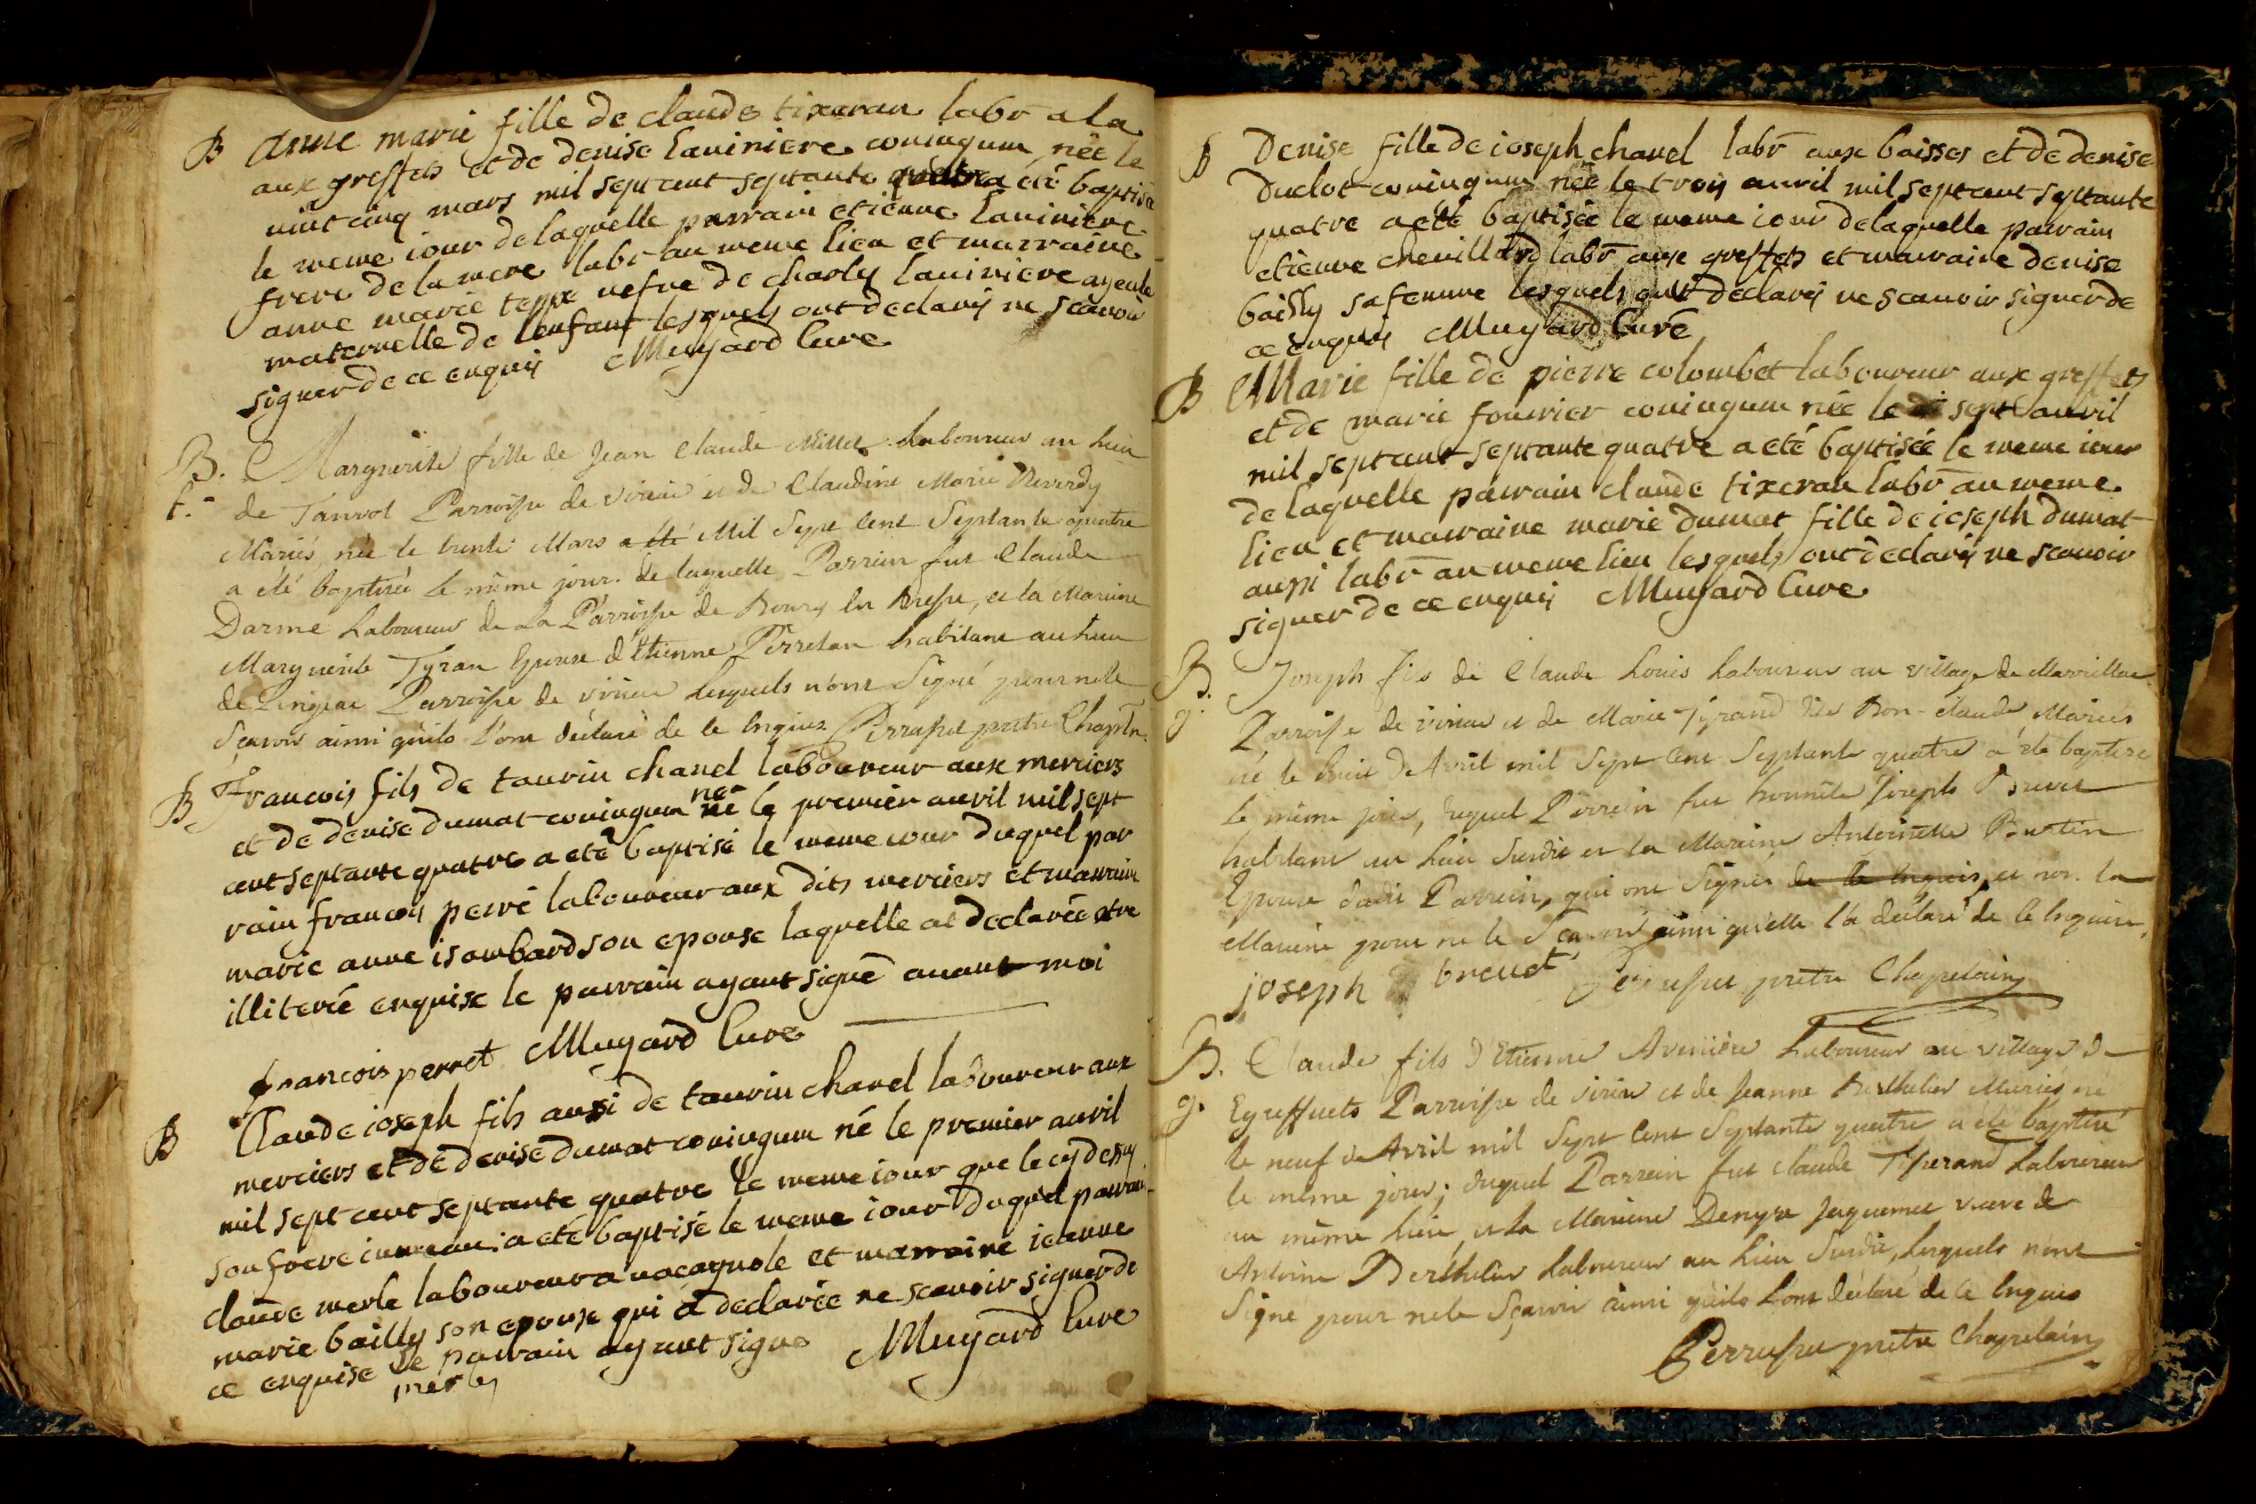 B anne marie fille de claude tixeran labr a la
aux greffets et de denise laviniere coniugum née le
vint cinq mars mil sept cent septante quatre a été baptisée
le meme iour de laquelle parrain etienne laviniere
frere de la mere labr au meme lieu et marraine
anne marie teppe vefve de charly laviniere ayeule
maternelle de lenfant lesquels ont declarés ne scavoir
signer de ce enquis Muyard Curé
B. Marguerite fille de Jean Claude Millet Laboureur au lieu
f. de Tanvol Parroisse de viriat et de Claudine Marie Reverdy
Mariés, née le trente Mars a été Mil Sept Cent Septante quatre
a été baptisée le même jour. de laquelle Parrein fut Claude
Darme Laboureur de La Parroisse de Bourg En Bresse, et la Mareine
Marguerite Tyran Epouse d'Etienne Perretan habitant au lieu
de Lingeat Parroisse de viriat Lesquels n'ont Signé pour ne le
Sçavoir ainsi qu'ils l'ont déclaré de ce Enquis Perrusset prêtre Chapln.
B Francois fils de taurin chanel laboureur aux merciers
et de denise dumat coniugum né né le premier avril mil sept
cent septante quatre a eté baptisé le meme iour duquel par
rain francois perré laboureur aux dits merciers et marraine
marie anne isambard son epouse laquelle a declarée etre
illiterée enquise le parrain ayant signé avant moi
francois perret Muyard Curé
B Claude ioseph fils aussi de taurin chanel laboureur aux
merciers et de denise dumat coniugum né le premier avril
mil sept cent septante quatre le meme iour que le cy dessus
son frere iumeau a eté baptisé le meme iour duquel parrain
claude merle laboureur a vacagnole et marraine ieanne
marie bailly son epouse qui a declarée ne scavoir signer de
ce enquise le parrain ayant signé Muyard Curé
merle
B Denise fille de ioseph chanel labr aux baisses et de denise
duclot coniugum née le trois avril mil sept cent septante
quatre a eté baptisée le meme iour de laquelle parrain
etienne chevillard labr aux greffets et marraine denise
bailly sa femme lesquels ont declarés ne scavoir signer de
ce enquis Muyard Curé
B Marie fille de pierre colombet laboureur aux greffets
et de marie fourrier coniugum née le sept avril
mil sept cent septante quatre a eté baptisée le meme iour
de laquelle parrain claude tixeran labr au meme
lieu et marraine marie dumat fille de ioseph dumat
aussi labr au meme lieu lesquels ont declarés ne scavoir
signer de ce enquis Muyard Curé
B. Joseph fils de Claude Louis Laboureur au village de Marvillat
g. Parroisse de viriat et de Marie Tyrand dite Bon-claude Mariés
né le huit d'Avril mil Sept Cent Septante quatre a été baptisé
le même jour, duquel Parrein fut honnête Joseph Brevet
habitant au Lieu Susdit et la Mareine Antoinette Bustin
Epouse dudit Parrein, qui ont Signés de ce Enquis et non la
Mareine pour ne le Sçavoir ainsi qu'elle l'a déclaré de ce Enquise.
joseph brevet Perrusset prêtre Chapelain
B. Claude fils d'Etienne Aviniere Laboureur au village d
g. Egreffuets Parroisse de viriat et de Jeanne Berthelier Mariés né
le neuf d'Avril mil Sept Cent Septante quatre a été baptisé
le même jour; duquel Parrein fut Claude Tisserand Laboureur
au même lieu, et la Mareine Denyse Jaquemet veuve de
Antoine Berthelier Laboureur au Lieu Susdit, Lesquels n'ont
Signé pour ne le Sçavoir ainsi qu'ils L'ont déclaré de ce Enquis
Perrusset prêtre Chapelain